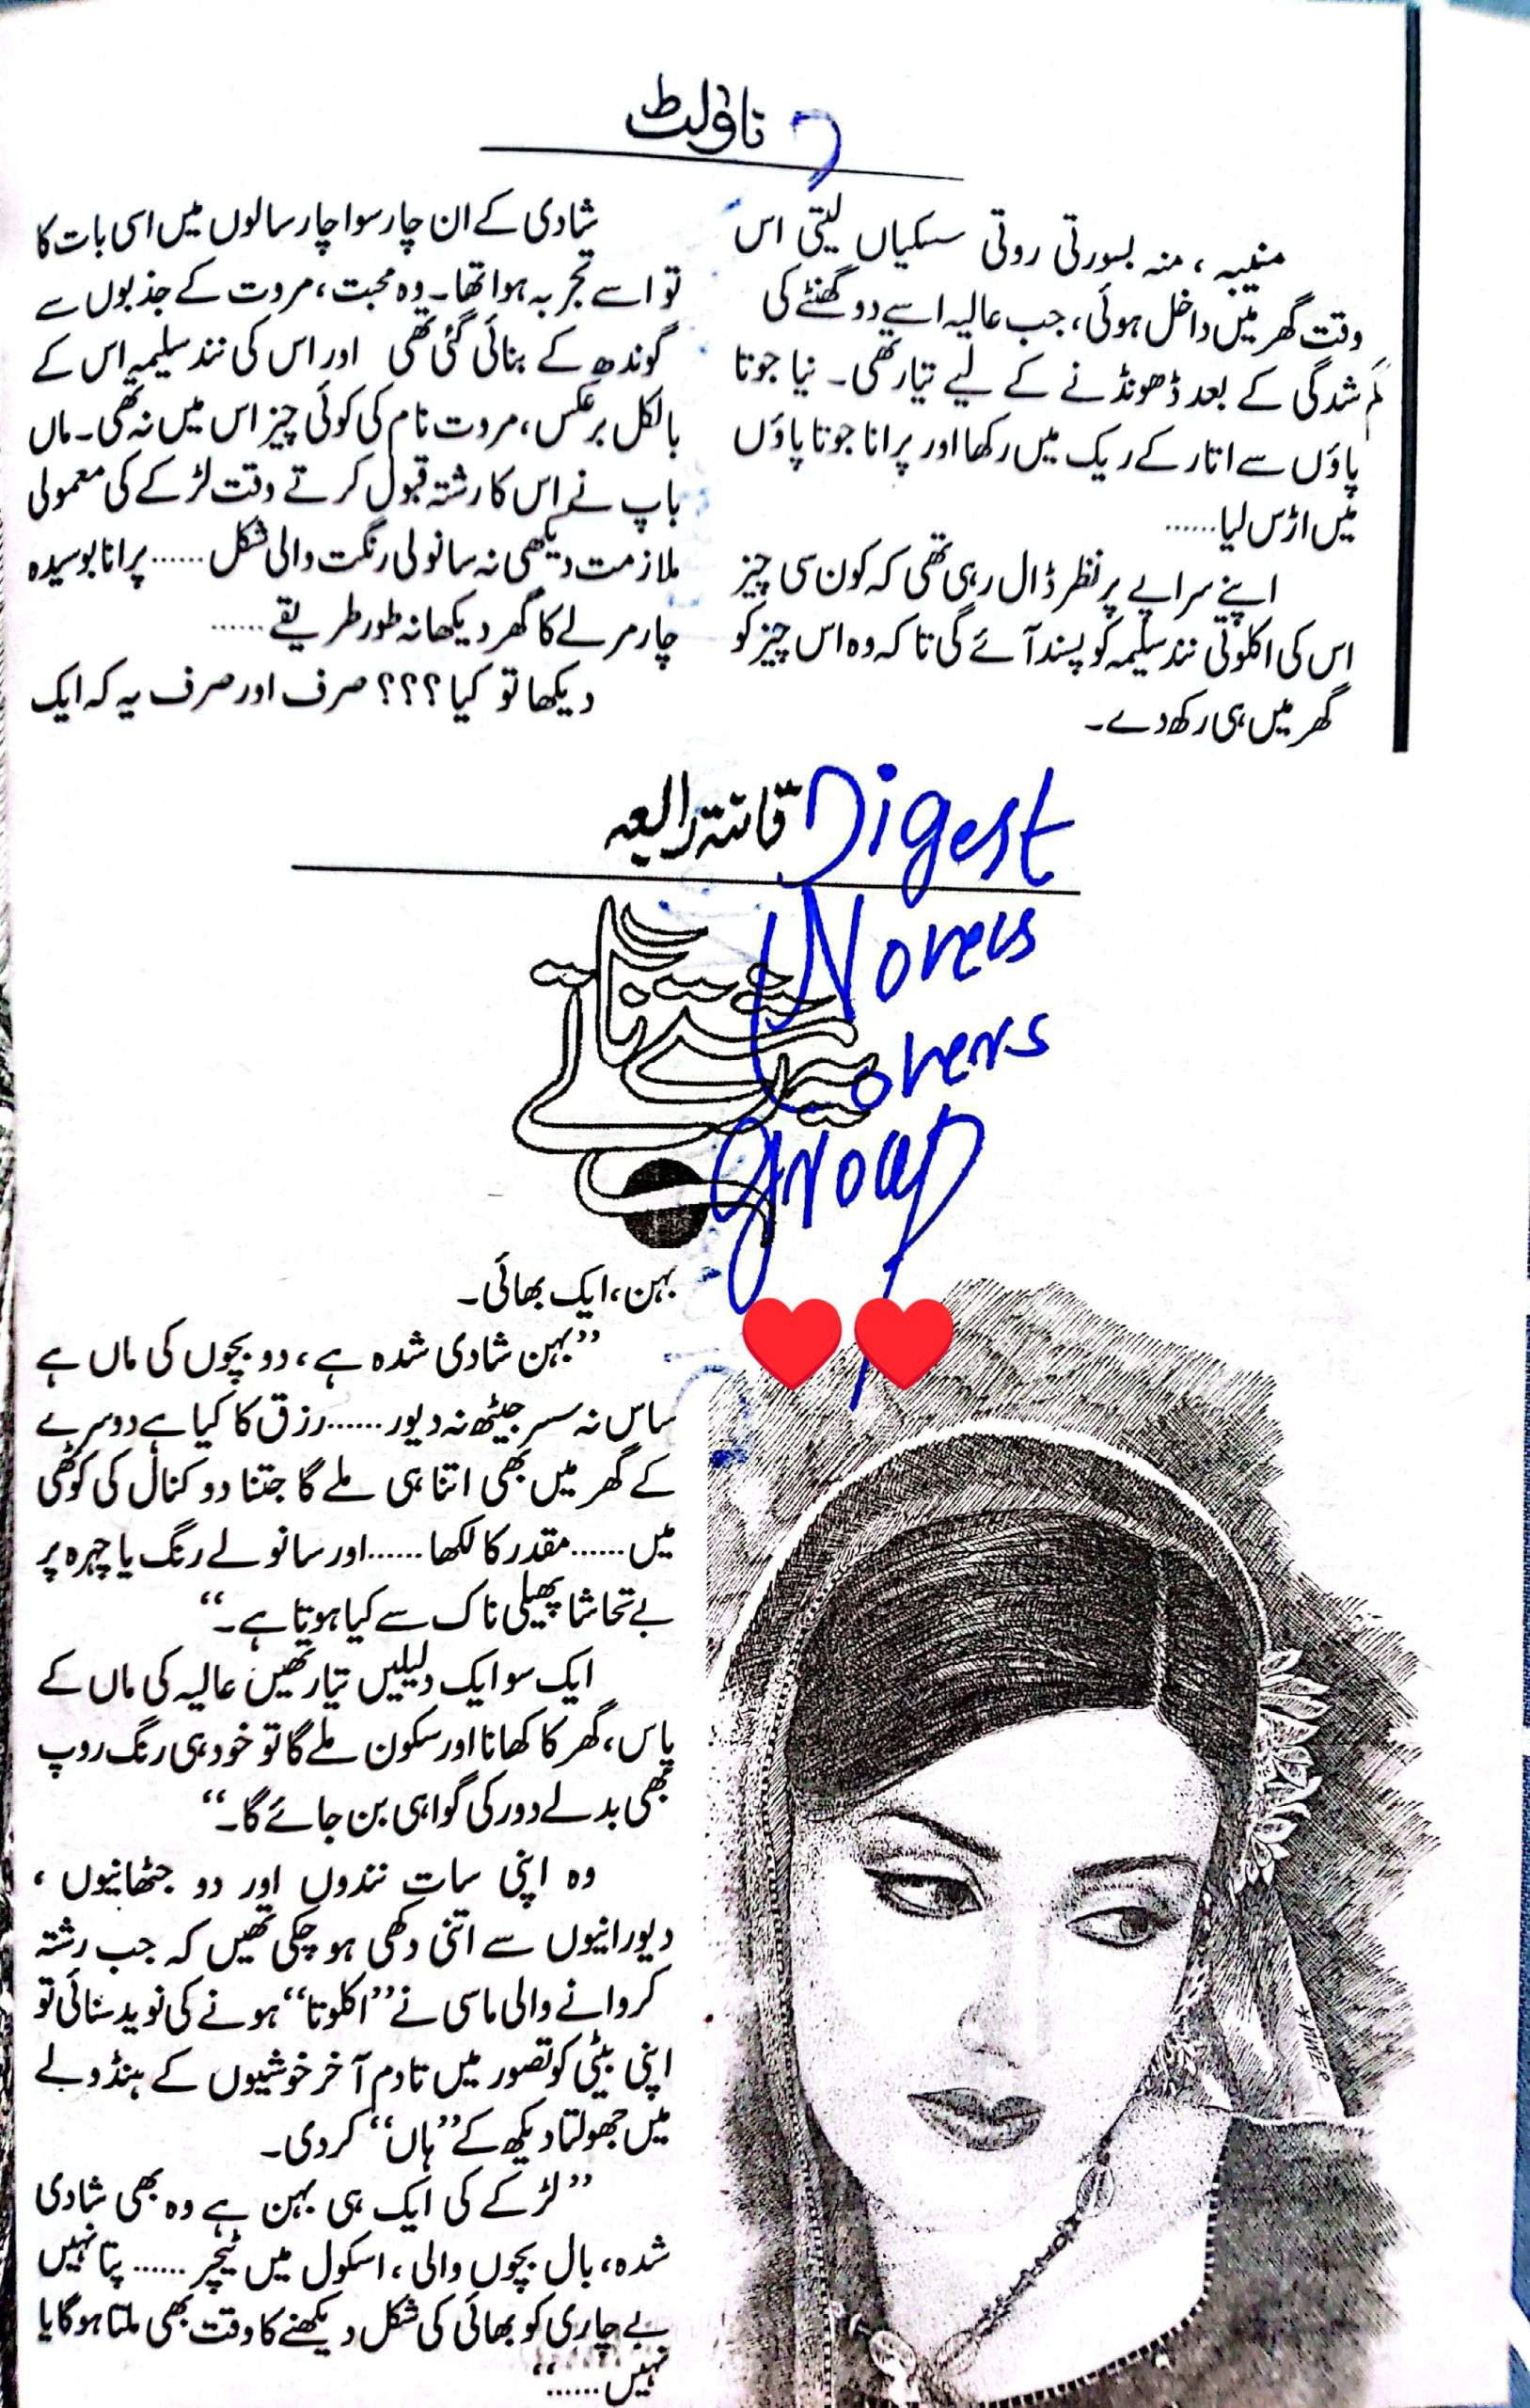 ناولٹ
منیبہ ، منہ بسورتی روتی سسکیاں لیتی اس
وقت گھر میں داخل ہوئی، جب عالیہ اسے دو گھنٹے کی
گم شدگی کے بعد ڈھونڈنے کے لیے تیار تھی۔ نیا جوتا
پاؤں سے اتار کے ریک میں رکھا اور پرانا جوتا پاؤں
میں اڑس لیا......
اپنے سراپے پر نظر ڈال رہی تھی کہ کون سی چیز
اس کی اکلوتی نند سلیمہ کو پسند آئے گی تاکہ وہ اس چیز کو
گھر میں ہی رکھ دے۔
شادی کے ان چار سوا چار سالوں میں اسی بات کا
تو اسے تجربہ ہوا تھا۔ وہ محبت، مروت کے جذبوں سے
گوندھ کے بنائی گئی تھی اور اس کی نند سلیمہ اس کے
بالکل برعکس، مروت نام کی کوئی چیز اس میں نہ تھی۔ ماں
باپ نے اس کا رشتہ قبول کرتے وقت لڑکے کی معمولی
ملازمت دیکھی نہ سانولی رنگت والی شکل...... پرانا بوسیدہ
چار مرلے کا گھر دیکھا نہ طور طریقے......
دیکھا تو کیا؟؟؟ صرف اور صرف یہ کہ ایک
قانتہ رابعہ
Digest
Novels
Lovers
group
میرے رشتے ناتے
بہن، ایک بھائی۔
”بہن شادی شدہ ہے، دو بچوں کی ماں ہے
ساس نہ سسر جیٹھ نہ دیور...... رزق کا کیا ہے دوسرے
کے گھر میں بھی اتنا ہی ملے گا جتنا دو کنال کی کوٹھی
میں...... مقدر کا لکھا...... اور سانولے رنگ یا چہرہ پر
بے تحاشا پھیلی ناک سے کیا ہوتا ہے۔“
ایک سو ایک دلیلیں تیار تھیں عالیہ کی ماں کے
پاس، گھر کا کھانا اور سکون ملے گا تو خود ہی رنگ روپ
بھی بدلے دور کی گواہی بن جائے گا۔“
وہ اپنی سات نندوں اور دو جٹھانیوں ،
دیورانیوں سے اتنی دکھی ہو چکی تھیں کہ جب رشتہ
کروانے والی ماسی نے ”اکلوتا“ ہونے کی نوید سنائی تو
اپنی بیٹی کو تصور میں تادم آخر خوشیوں کے ہنڈولے
میں جھولتا دیکھ کے ”ہاں“ کردی۔
”لڑکے کی ایک ہی بہن ہے وہ بھی شادی
شدہ، بال بچوں والی، اسکول میں ٹیچر...... پتا نہیں
بے چاری کو بھائی کی شکل دیکھنے کا وقت بھی ملتا ہوگا یا
نہیں......“